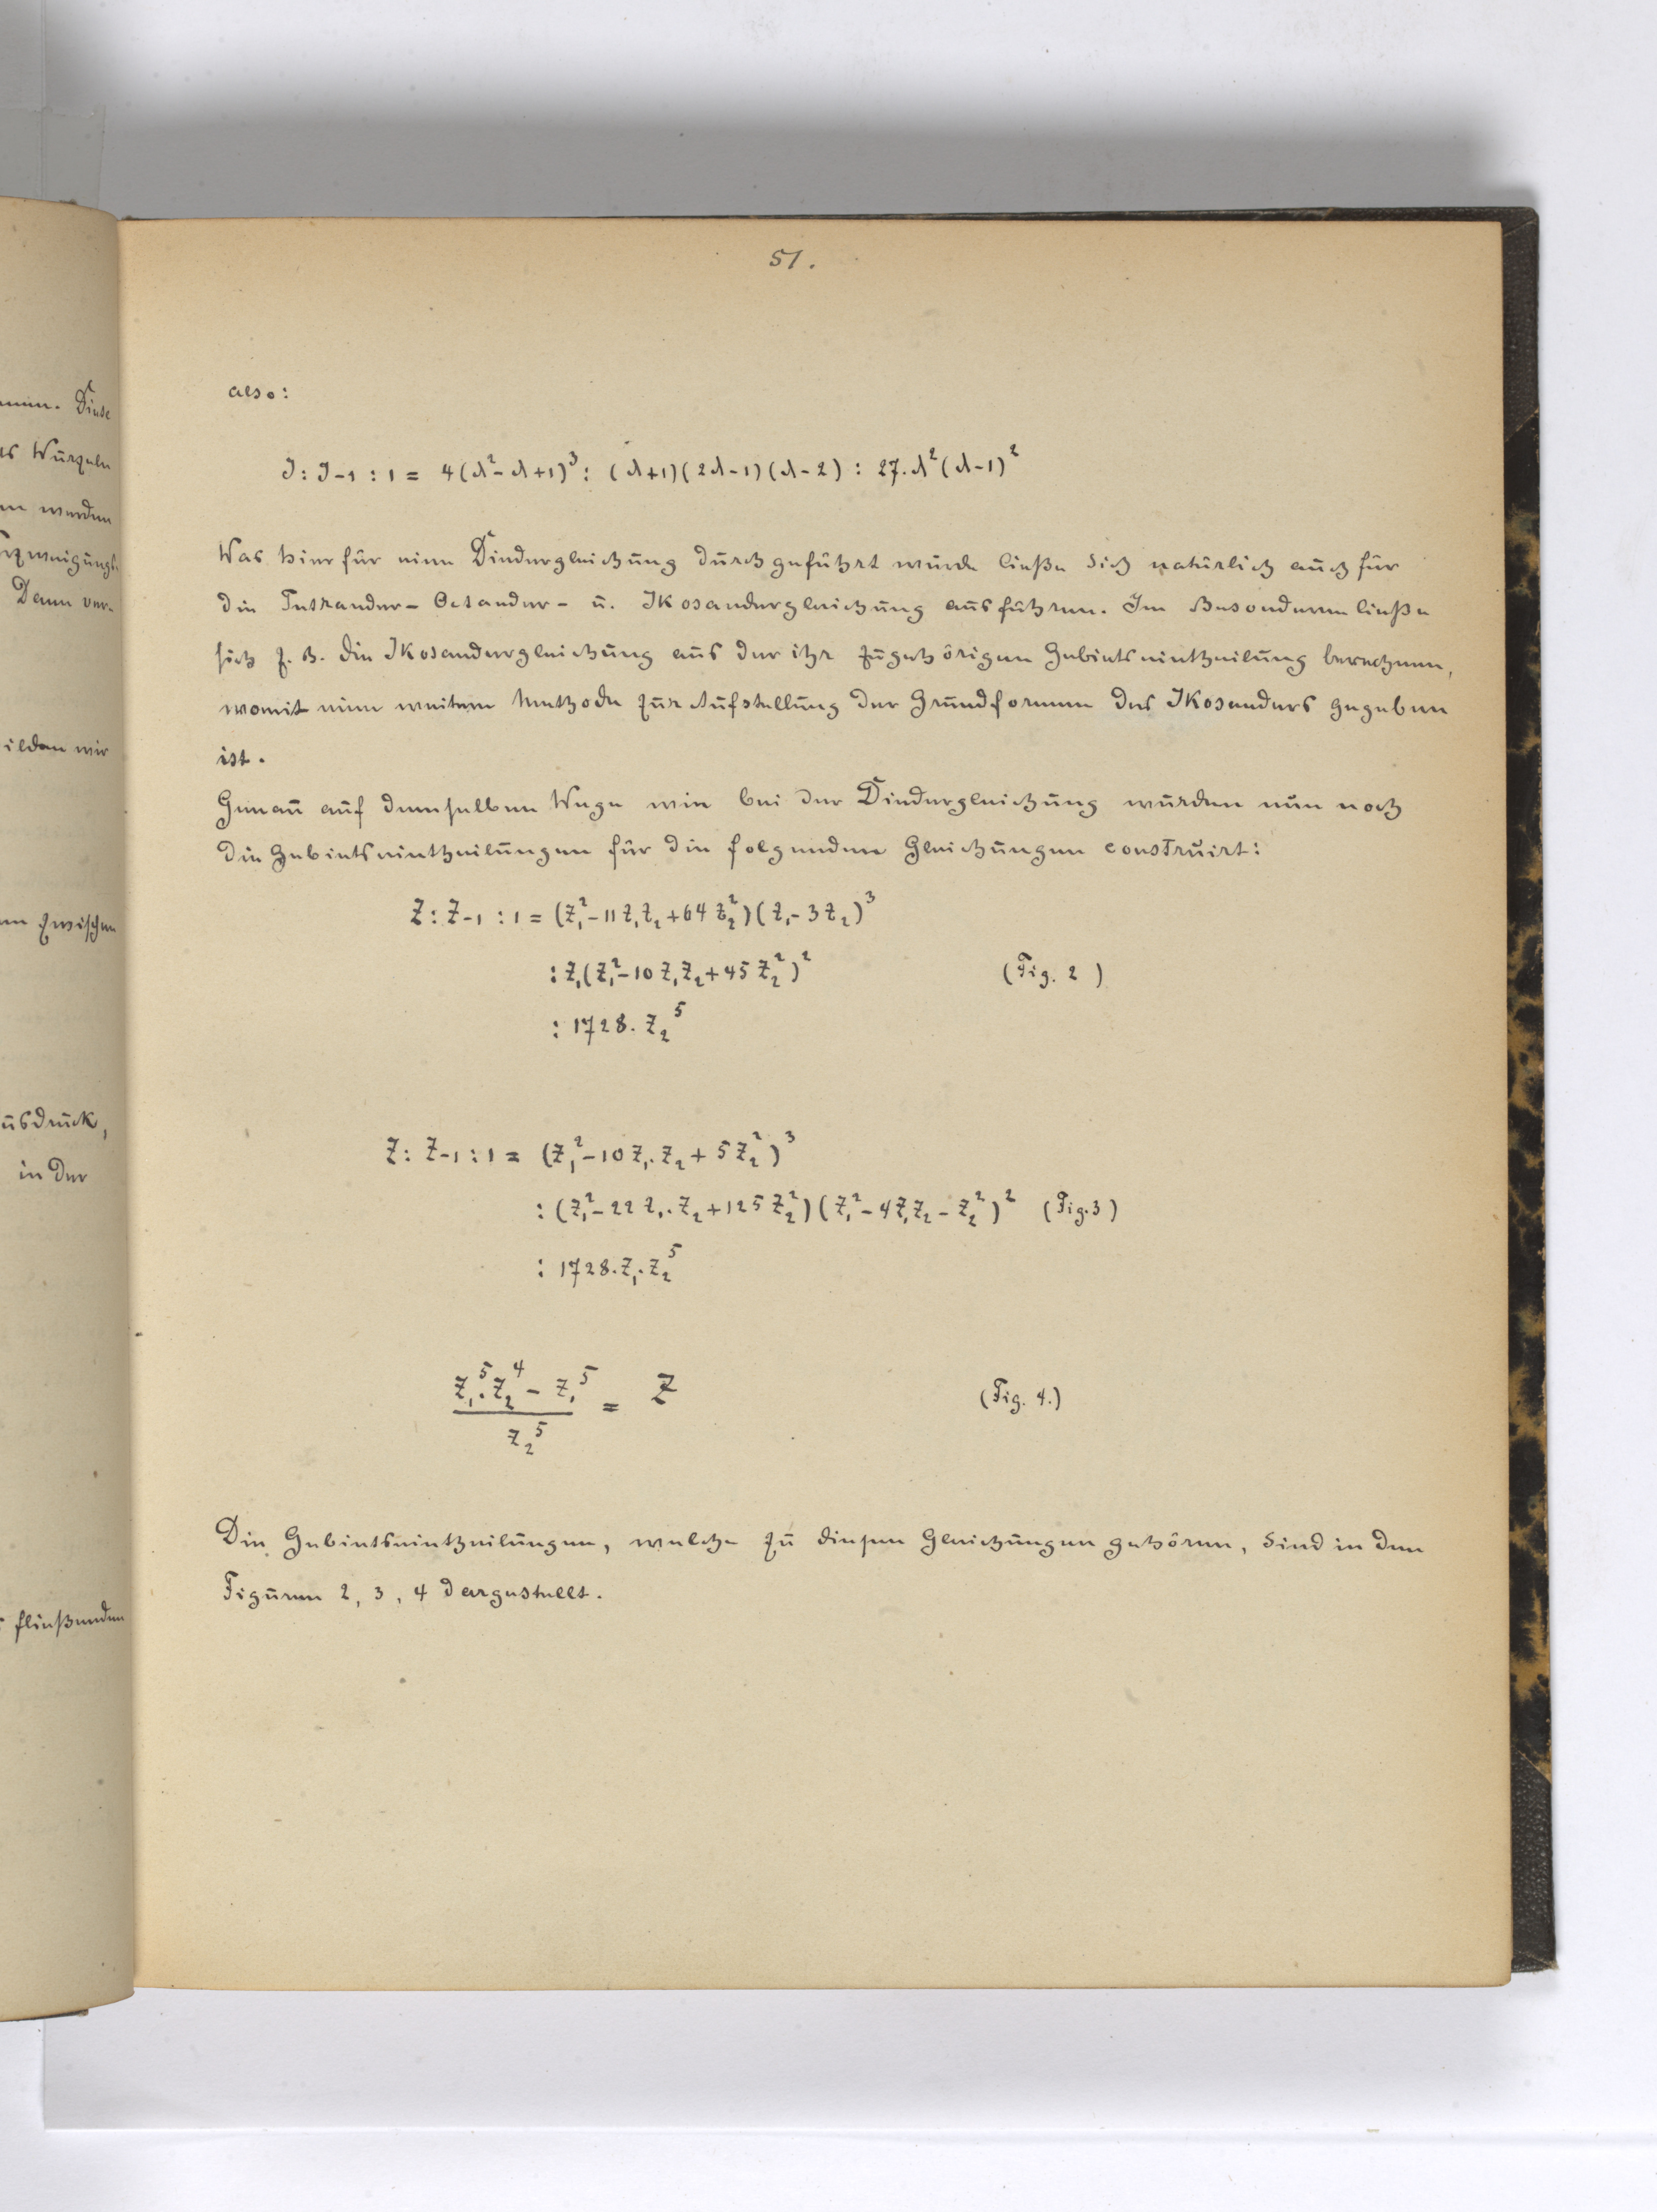 51.
also:
J : J-1 : 1 = 4(λ²-λ+1)³ : (λ+1)(2λ-1)(λ-2) : 27.λ²(λ-1)²
Was hier für eine Diedergleichung durchgeführt wurde ließe sich natürlich auch für
die Tetraeder- Octaeder- u. Ikosaedergleichung ausführen. Im Besonderen ließe
sich z. B. die Ikosaedergleichung aus der ihr zugehörigen Gebietseintheilung berechnen,
womit eine weitere Methode zur Aufstellung der Grundformen des Ikosaeders gegeben
ist.
Genau auf demselben Wege wie bei der Diedergleichung wurden nun noch
die Gebietseintheilungen für die folgenden Gleichungen construirt:
Z : Z-1 : 1 = (z₁²-11z₁z₂+64z₂²)(z₁-3z₂)³
: z₁(z₁²-10z₁z₂+45z₂²)² (Fig. 2)
: 1728. z₂⁵
Z : Z-1 : 1 = (z₁²-10z₁.z₂+5z₂²)³
: (z₁²-22z₁.z₂+125z₂²)(z₁²-4z₁z₂-z₂²)² (Fig.3)
: 1728.z₁.z₂⁵
z₁⁵.z₂⁴ - z₁⁵ = Z (Fig. 4.)
z₂⁵
Die Gebietseintheilungen, welche zu diesen Gleichungen gehören, sind in den
Figuren 2, 3, 4 dargestellt.
Diese
Wurzeln
werden
Denn ver-
ilden wir
zwischen
in der
fließenden